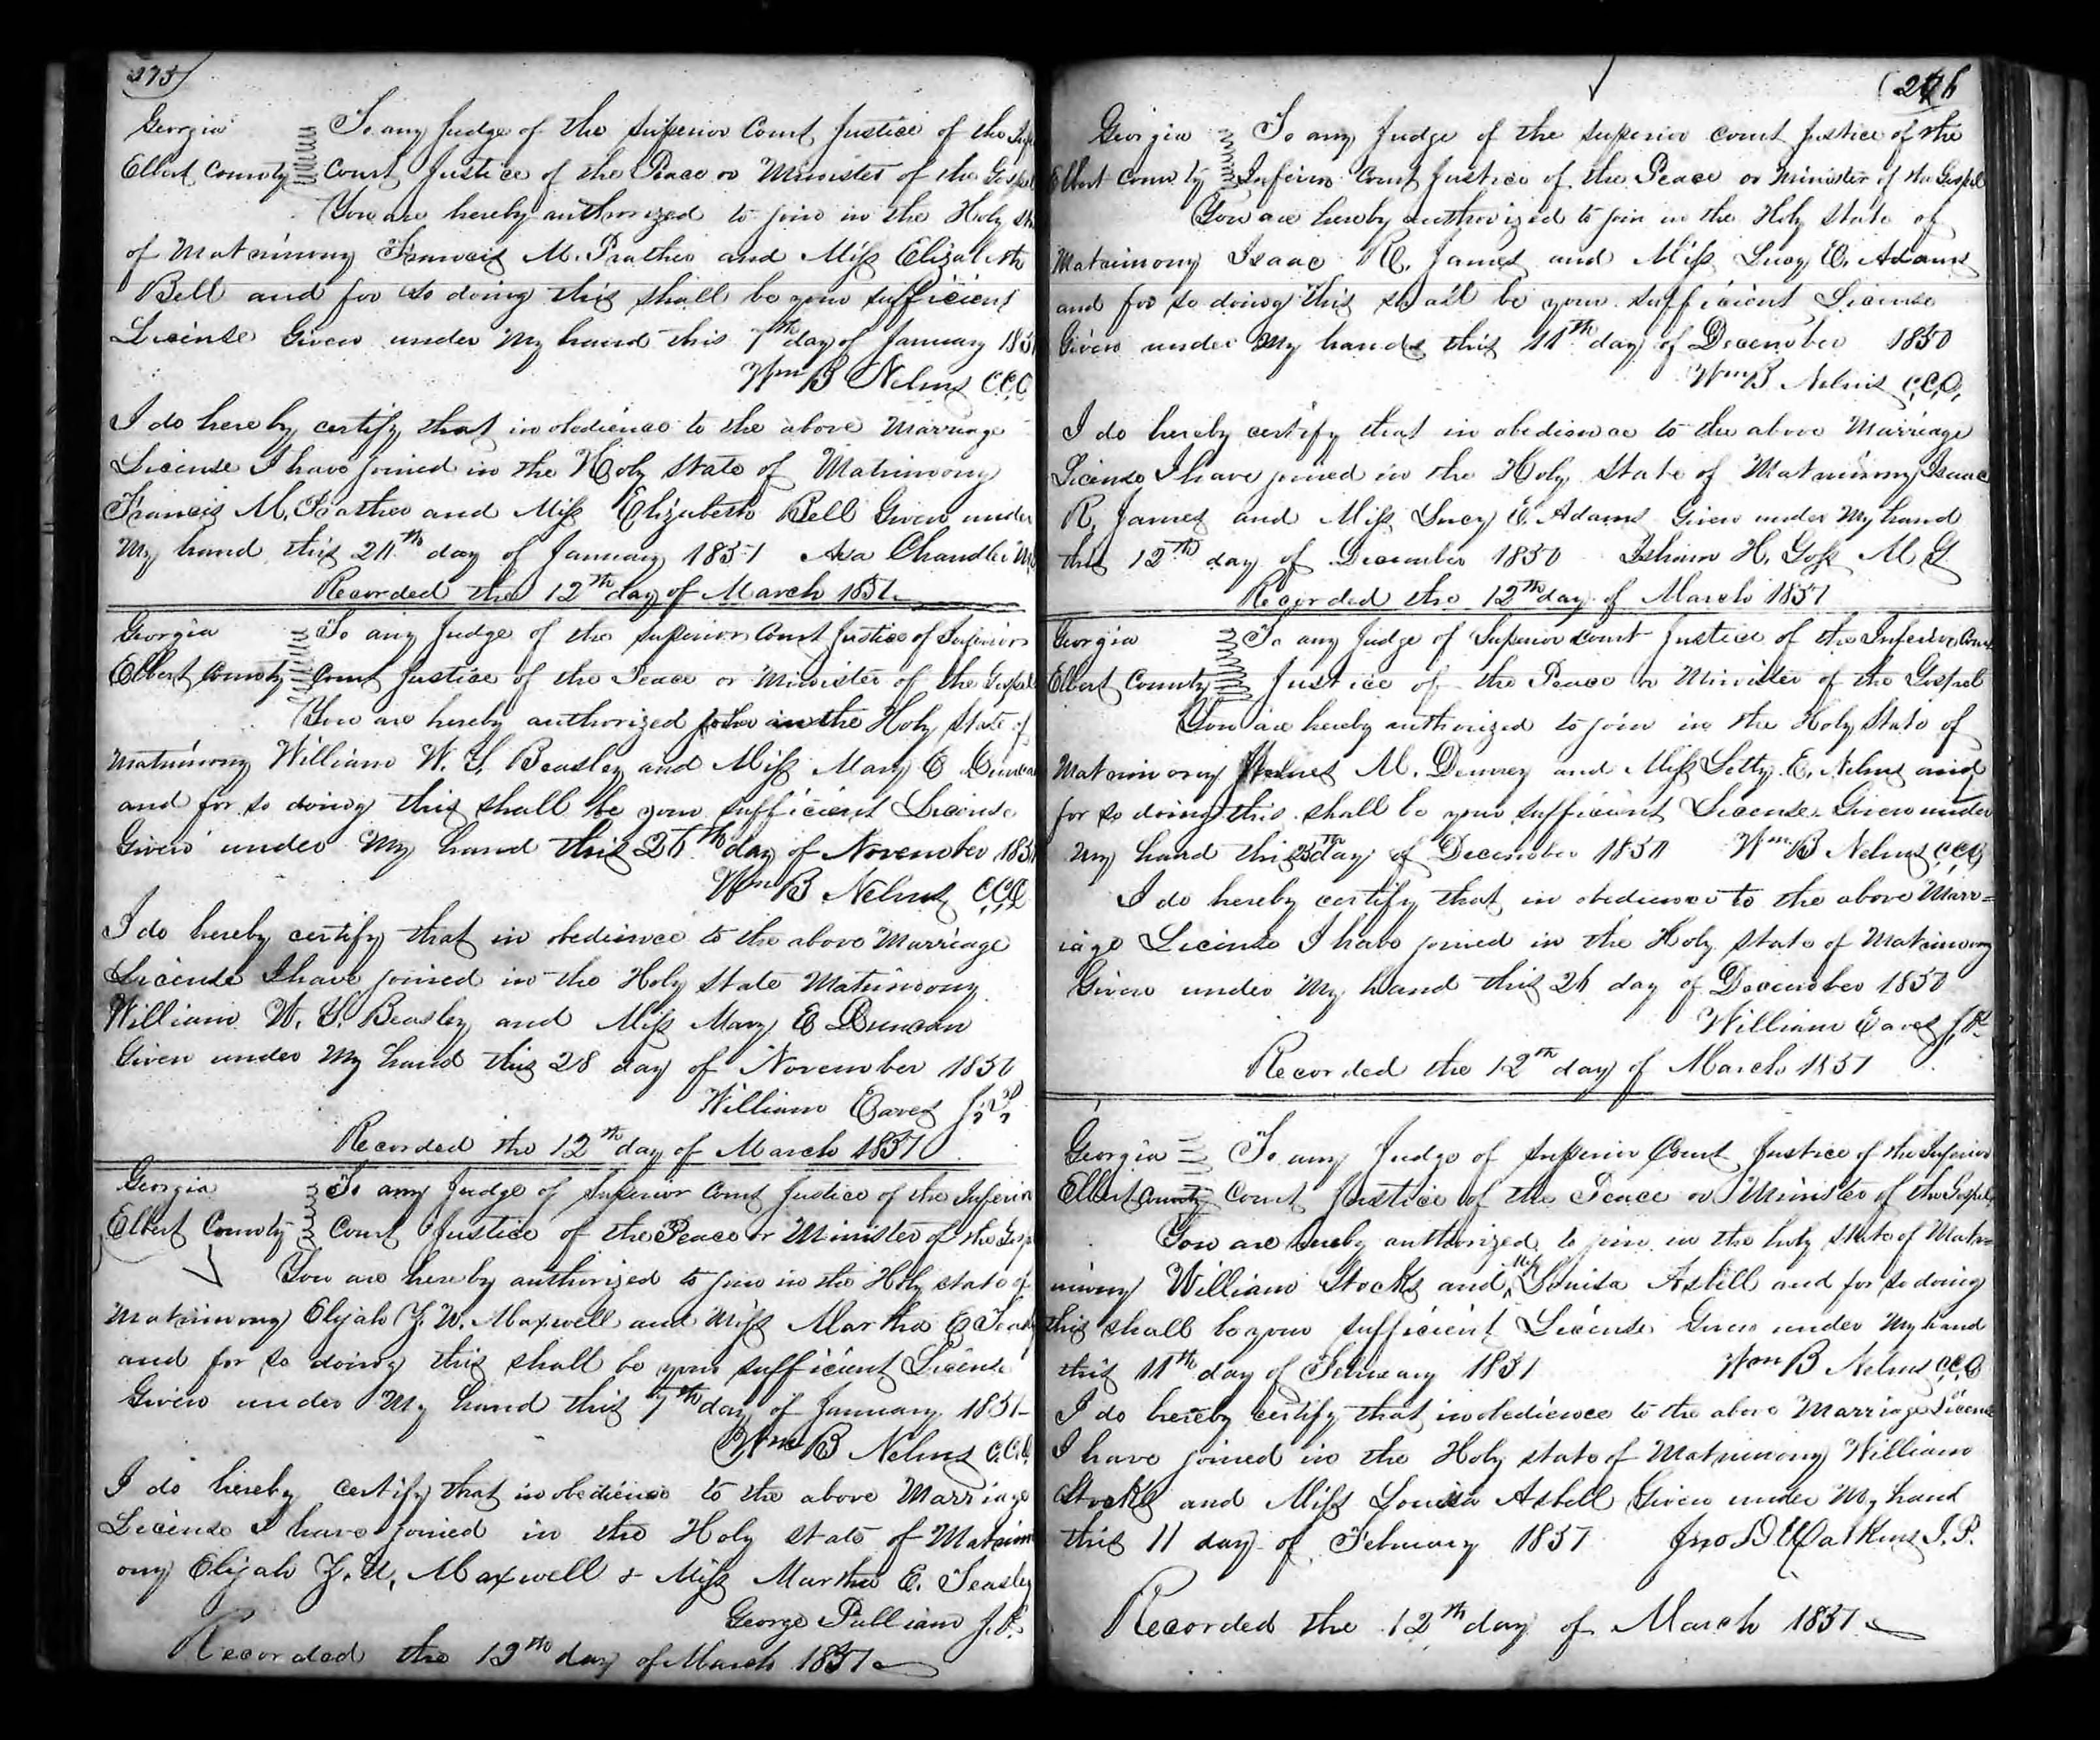 275
Georgia To any Judge of the Superior Court Justice of the
Elbert County Court Justice of the Peace or Minister of the Gospel
You are hereby authorized to join in the Holy
of Matrimony Francis M. Prather and Miss Elizabeth
Bell and for so doing this shall be your sufficient
License Given under my hand this 7th day of January
Wm B Nelms C.C.O
I do hereby certify that in obedience to the above Marriage
License I have joined in the Holy State of Matrimony
Francis M. Prather and Miss Elizabeth Bell Given under
My hand this day of January 1851 Asa Chandler
Recorded the 12th day of March 1851
Georgia To any Judge of the Superior Court Justice of Inferior
Elbert County Court Justice of the Peace or Minister of the Gospel
You are hereby authorized in the Holy State of
Matrimony William W. S. Beasley and Miss Mary E Duncan
and for so doing this shall be your sufficient License
Given under My hand this day of November
Wm B Nelms C.C.O
I do hereby certify that in obedience to the above Marriage
License I have joined in the Holy State Matrimony
William W. S. Beasley and Miss Mary E Duncan
Given under My hand this 28 day of November 1850
William Eaves J.P.
Recorded the 12th day of March 1851
Georgia To any Judge of Superior Court Justice of the Inferior
Elbert County Court Justice of the Peace or Minister of the
You are hereby authorized to join in the Holy state of
Matrimony Elijah W. Maxwell and Miss Martha E
and for so doing this shall be your sufficient License
Given under My hand this 7th day of January 1851
Wm B Nelms C.C.O
I do hereby certify that in obedience to the above Marriage
License I have joined in the Holy State of Matrim
ony Elijah Maxwell & Miss Martha E. Teasley
George Pulliam J.P.
Recorded the 12th day of March 1851
Georgia To any Judge of the Superior Court Justice of the
Elbert County Inferior Court Justice of the Peace or Minister of the Gospel
You are hereby authorized to join in the Holy State of
Matrimony Isaac R. James and Miss Lucy E. Adams
and for so doing this shall be your sufficient License
Given under My hand this 11th day of December 1850
Wm B Nelms C.C.O.
I do hereby certify that in obedience to the above Marriage
License I have joined in the Holy State of Matrimony Isaac
R, James and Miss Lucy E. Adams Given under My hand
this 12th day of December 1850 Isham H. Goss M G
Recorded the 12th day of March 1851
Georgia To any Judge of Superior Court Justice of the Inferior Court
Elbert County Justice of the Peace or Minister of the Gospel
You are hereby authorized to join in the Holy State of
Matrimony M. Denney and Miss Letty E. Nelms and
for so doing this shall be your sufficient License Given under
My hand this day of December Wm B Nelms C.C.O
I do hereby certify that in obedience to the above Marr=
iage License I have joined in the Holy State of Matrimony
Given under My hand this 26 day of December 1850
William Eaves J.P.
Recorded the 12th day of March 1851
Georgia To any Judge of Superior Court Justice of the Inferior
Elbert County Court Justice of the Peace or Minister of the Gospel
You are hereby authorized to join in the holy state of Matri=
mony William Stocks and Miss Louisa Asbell and for so doing
this shall be your sufficient License Given under My hand
this 11th day of February 1851 Wm B Nelms C.C.O
I do hereby certify that in obedience to the above Marriage License
I have joined in the Holy state of Matrimony William
Stocks and Miss Louisa Asbell Given under My hand
this 11 day of February 1851 Jno D Watkins J.P.
Recorded the 12th day of March 1851